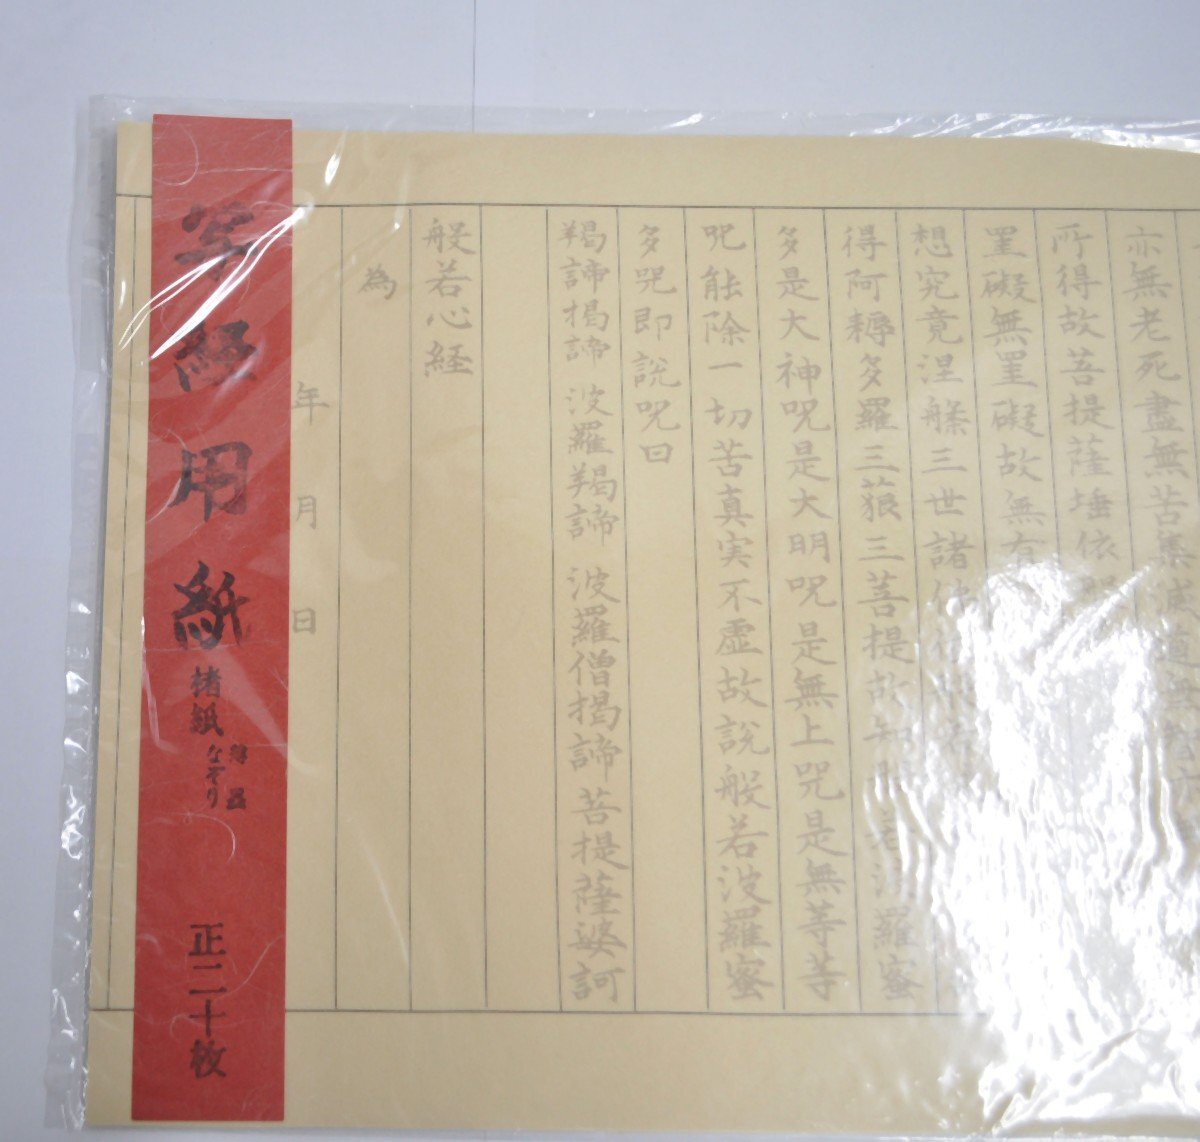 亦無老死盡無苦集滅道無
所得故菩提薩埵依
罣礙無罣礙故無有
想究竟涅槃三世諸佛
得阿耨多羅三藐三菩提故知 羅蜜
多是大神呪是大明呪是無上呪是無等等
呪能除一切苦真実不虚故説般若波羅蜜
多呪即説呪曰
羯諦揭諦 波羅羯諦 波羅僧揭諦 菩提薩婆訶
般若心経
為
年 月 日
写経用紙
楮紙
なぞり
正二十枚